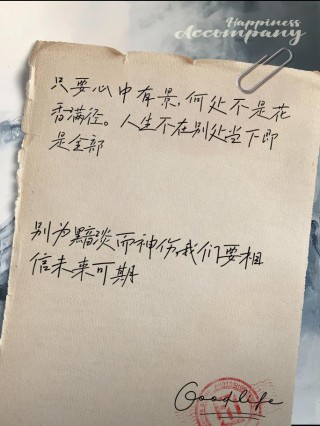 Happiness
Accompany
只要心中有景,何处不是花
香满径。人生不在别处当下即
是全部
别为黯淡而神伤,我们要相
信未来可期
Good life